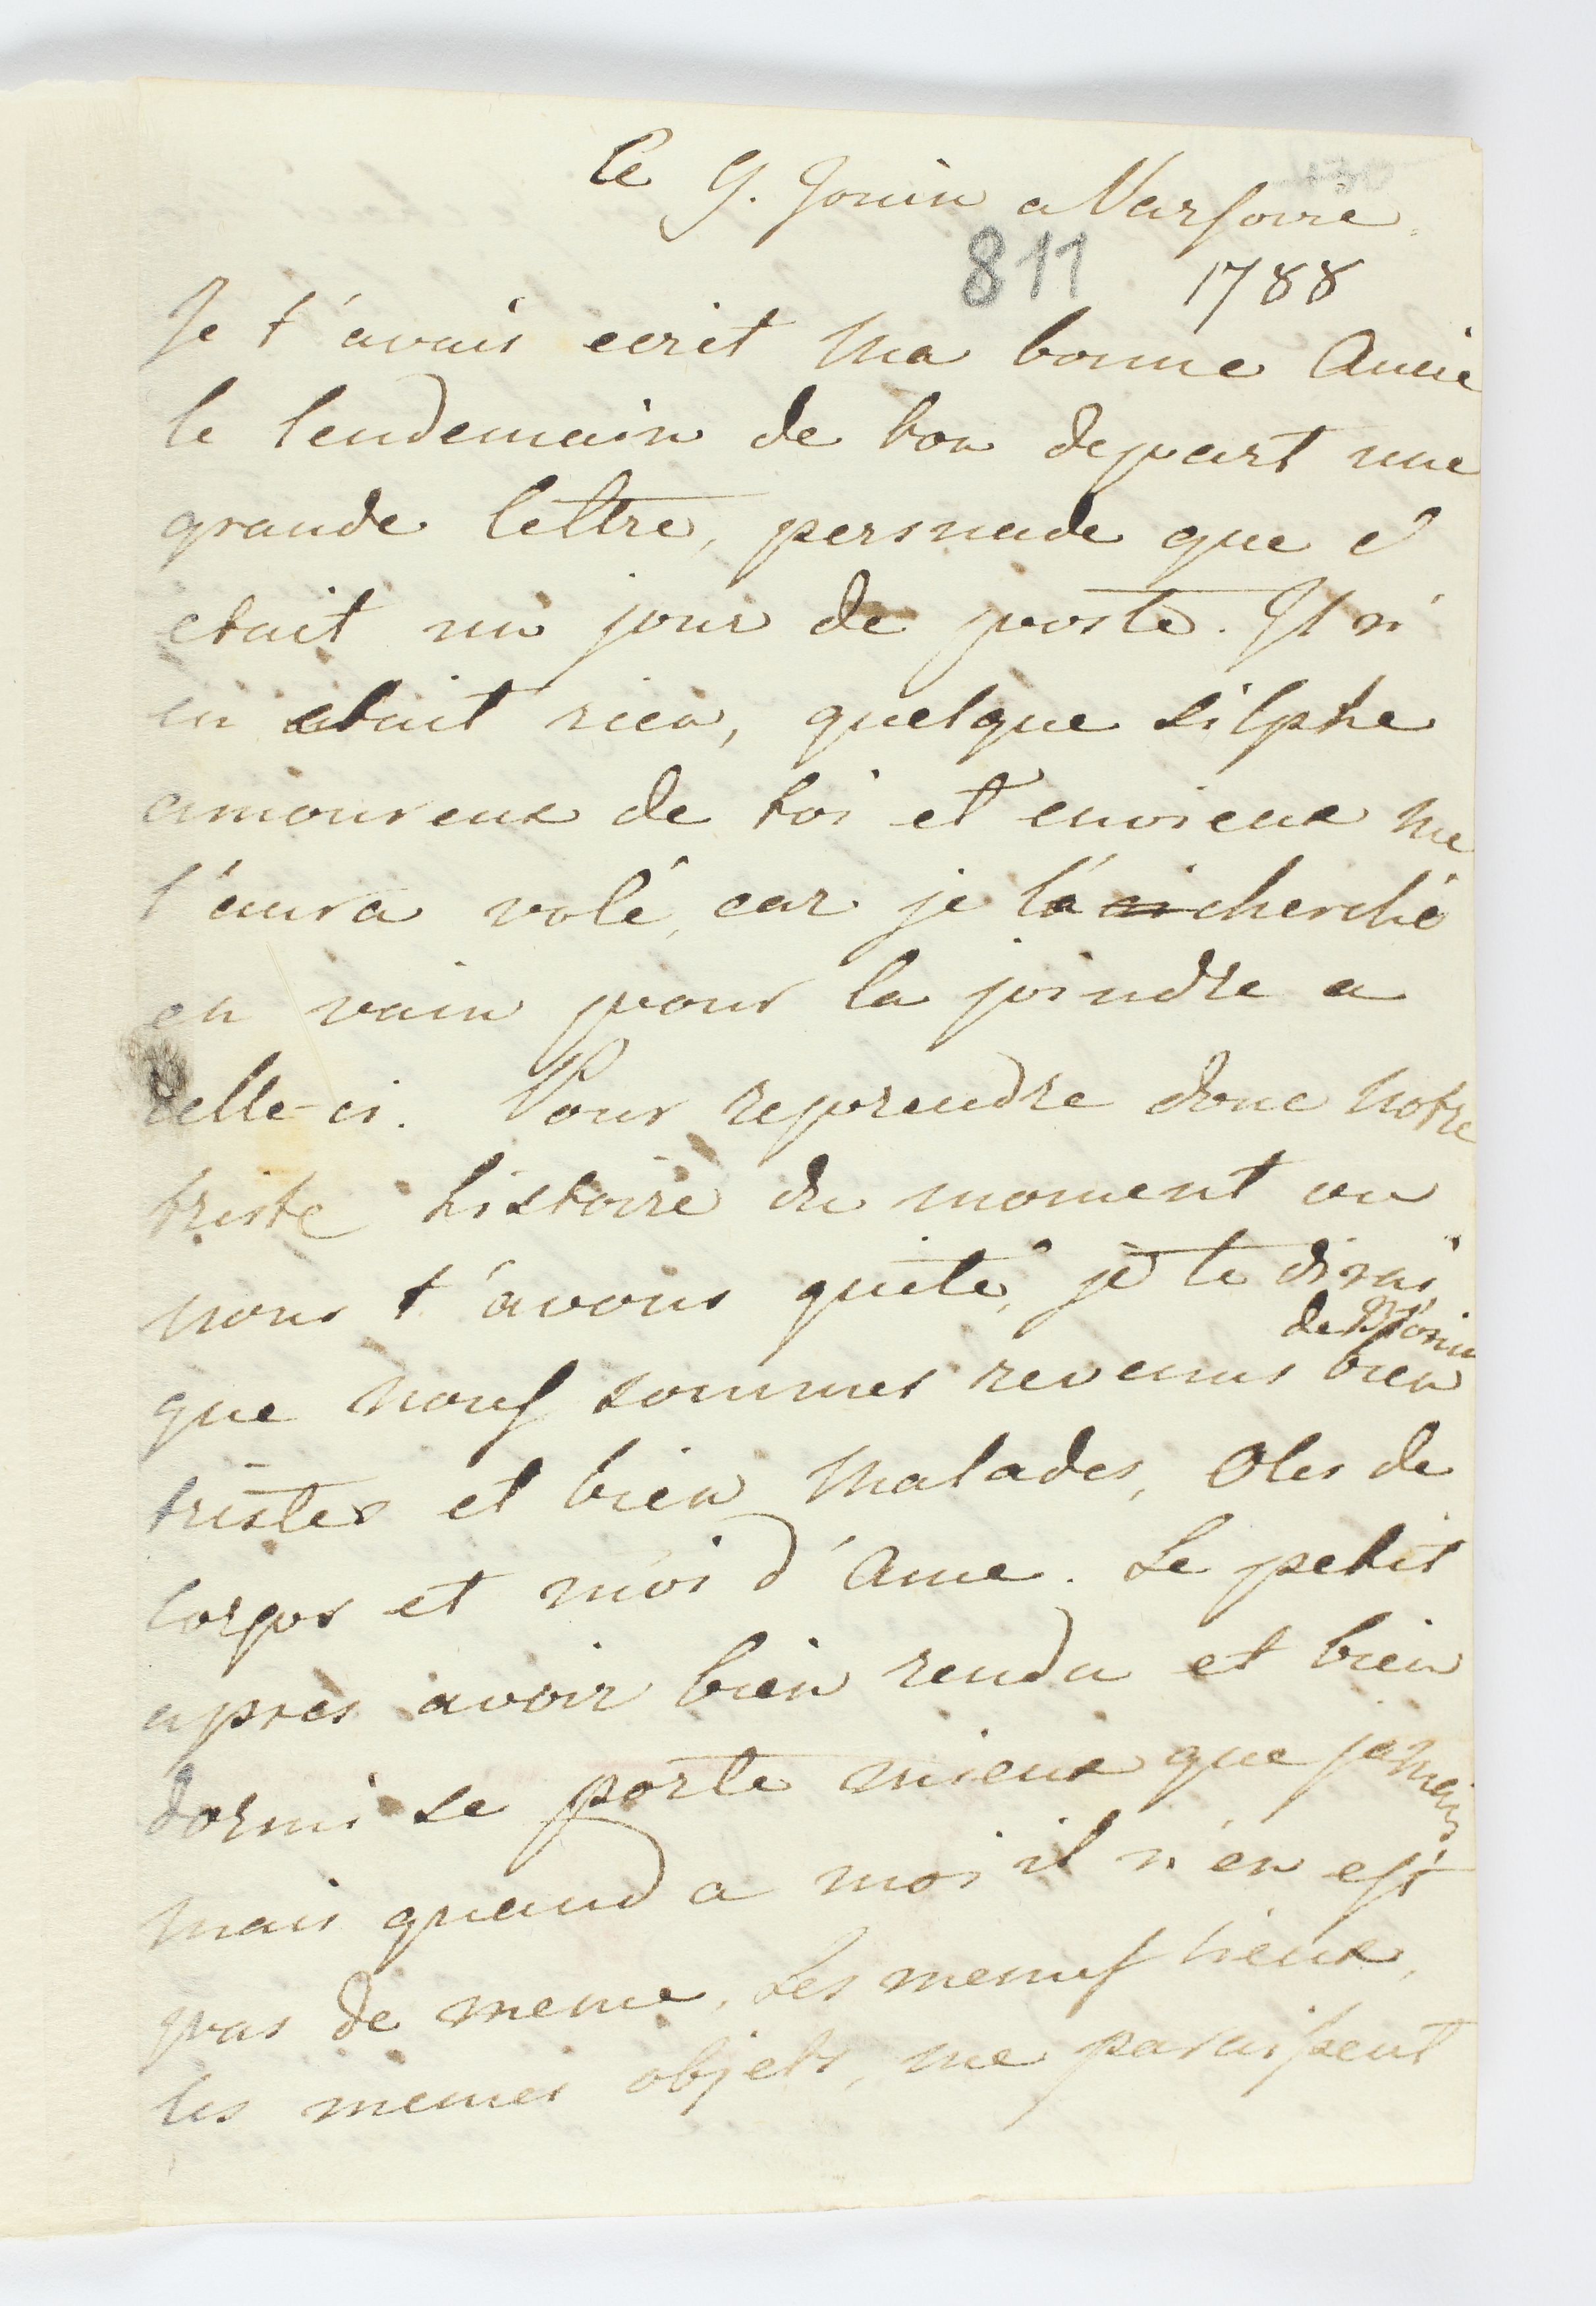 Ce 9. Jouin a Varsovie.
811 1788
Je t'avais ecrit ma bonne Amie
le lendemain de ton depart une
grande lettre, persuade que c'
etait un jour de poste. Il n'
en etait rien, quelque silphe
amoureux de toi et envieux me
l'aura volé, car je l'a ai cherché
en vain pour la joindre a
celle-ci. Pour reprendre donc notre
triste histoire du moment ou
nous t'avons quité, je te dirai
de
que nous sommes revenus bien
tristes et bien malades, Oles de
corps et moi d'Ame. Le petit
après avoir bien rendu et bien
dormi se porte mieux que jamais
mais quand a moi il n'en est
pas de meme, Les memes lieux,
les memes objets, me paraissent